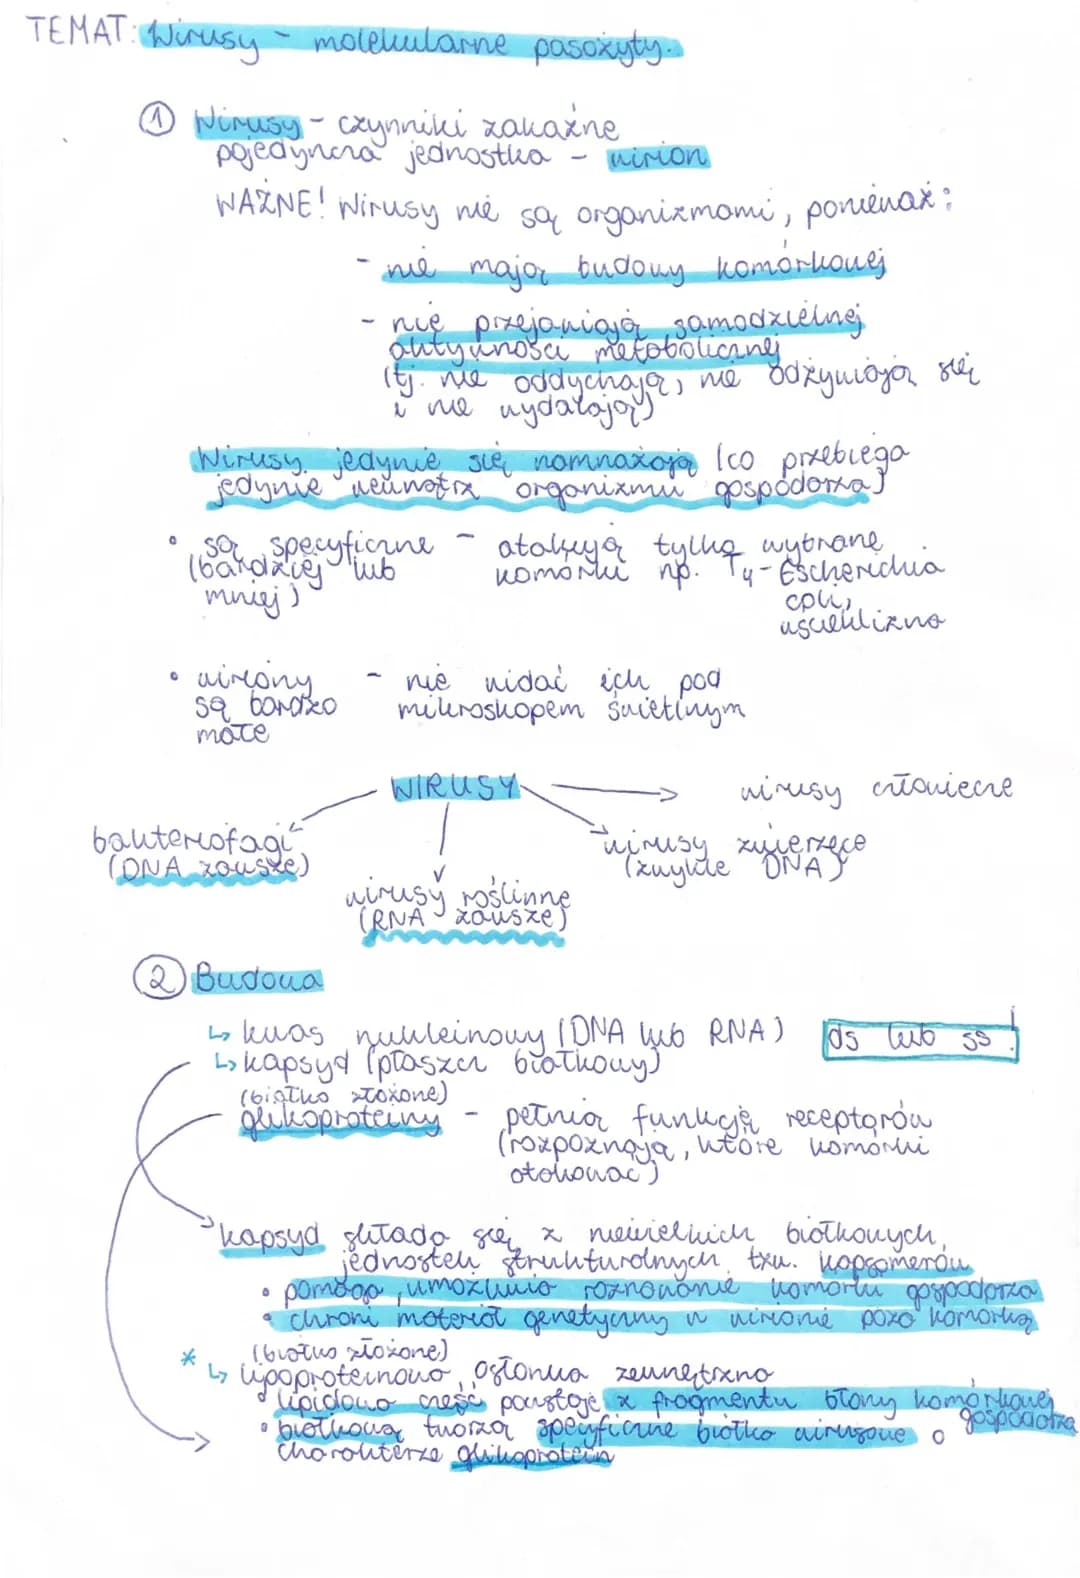 TEMAT: Wirusy - molekularne pasożyty.
① Wirusy - czynniki zakaźne
pojedyncza jednostka - wirion
WAŻNE! Wirusy nie są organizmami, ponieważ:
- nie mają budowy komórkowej
- nie przejawiają samodzielnej
aktywności metabolicznej
(tj. nie oddychają, nie odżywiają się
i nie wydalają)
Wirusy jedynie się namnażają (co przebiega
jedynie wewnątrz organizmu gospodarza)
• są specyficzne - atakują tylko wybrane
(bardziej lub komórki np. T4 - Escherichia
mniej) coli,
wścieklizna
• wiriony - nie widać ich pod
są bardzo mikroskopem świetlnym
małe
WIRUSY
wirusy człowiecze
bakteriofagi
(DNA zawsze)
wirusy zwierzęce
(zwykle DNA)
wirusy roślinne
(RNA zawsze)
② Budowa
↳ kwas nukleinowy (DNA lub RNA) ds lub ss!
↳ kapsyd (płaszcz białkowy)
(białko złożone)
glikoproteiny - pełnią funkcję receptorów
(rozpoznają, które komórki
atakować)
kapsyd składa się z niewielkich białkowych
jednostek strukturalnych tzw. kapsomerów
• pomaga, umożliwia rozpoznanie komórki gospodarza
• chroni materiał genetyczny w wirionie poza komórką
(białko złożone)
* ↳ lipoproteinowa osłonka zewnętrzna
• lipidowa część powstaje z fragmentu błony komórkowej
gospodarza
• białkową tworzą specyficzne białka wirusowe o
charakterze glikoprotein